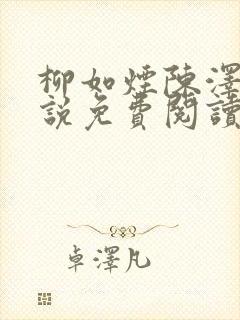 柳如煙陳澤
說免費閱讀
卓澤凡